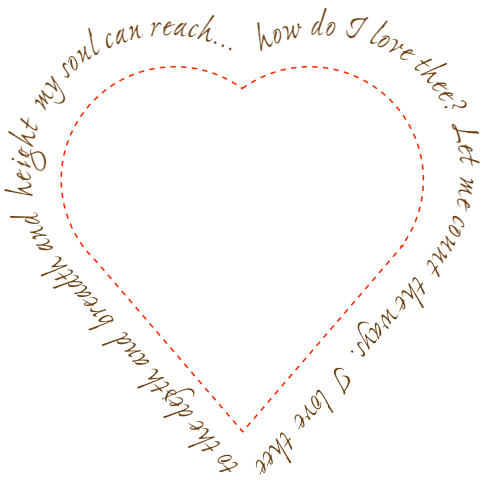 how do I love thee? Let me count the ways. I love thee
to the depth and breadth and height my soul can reach...